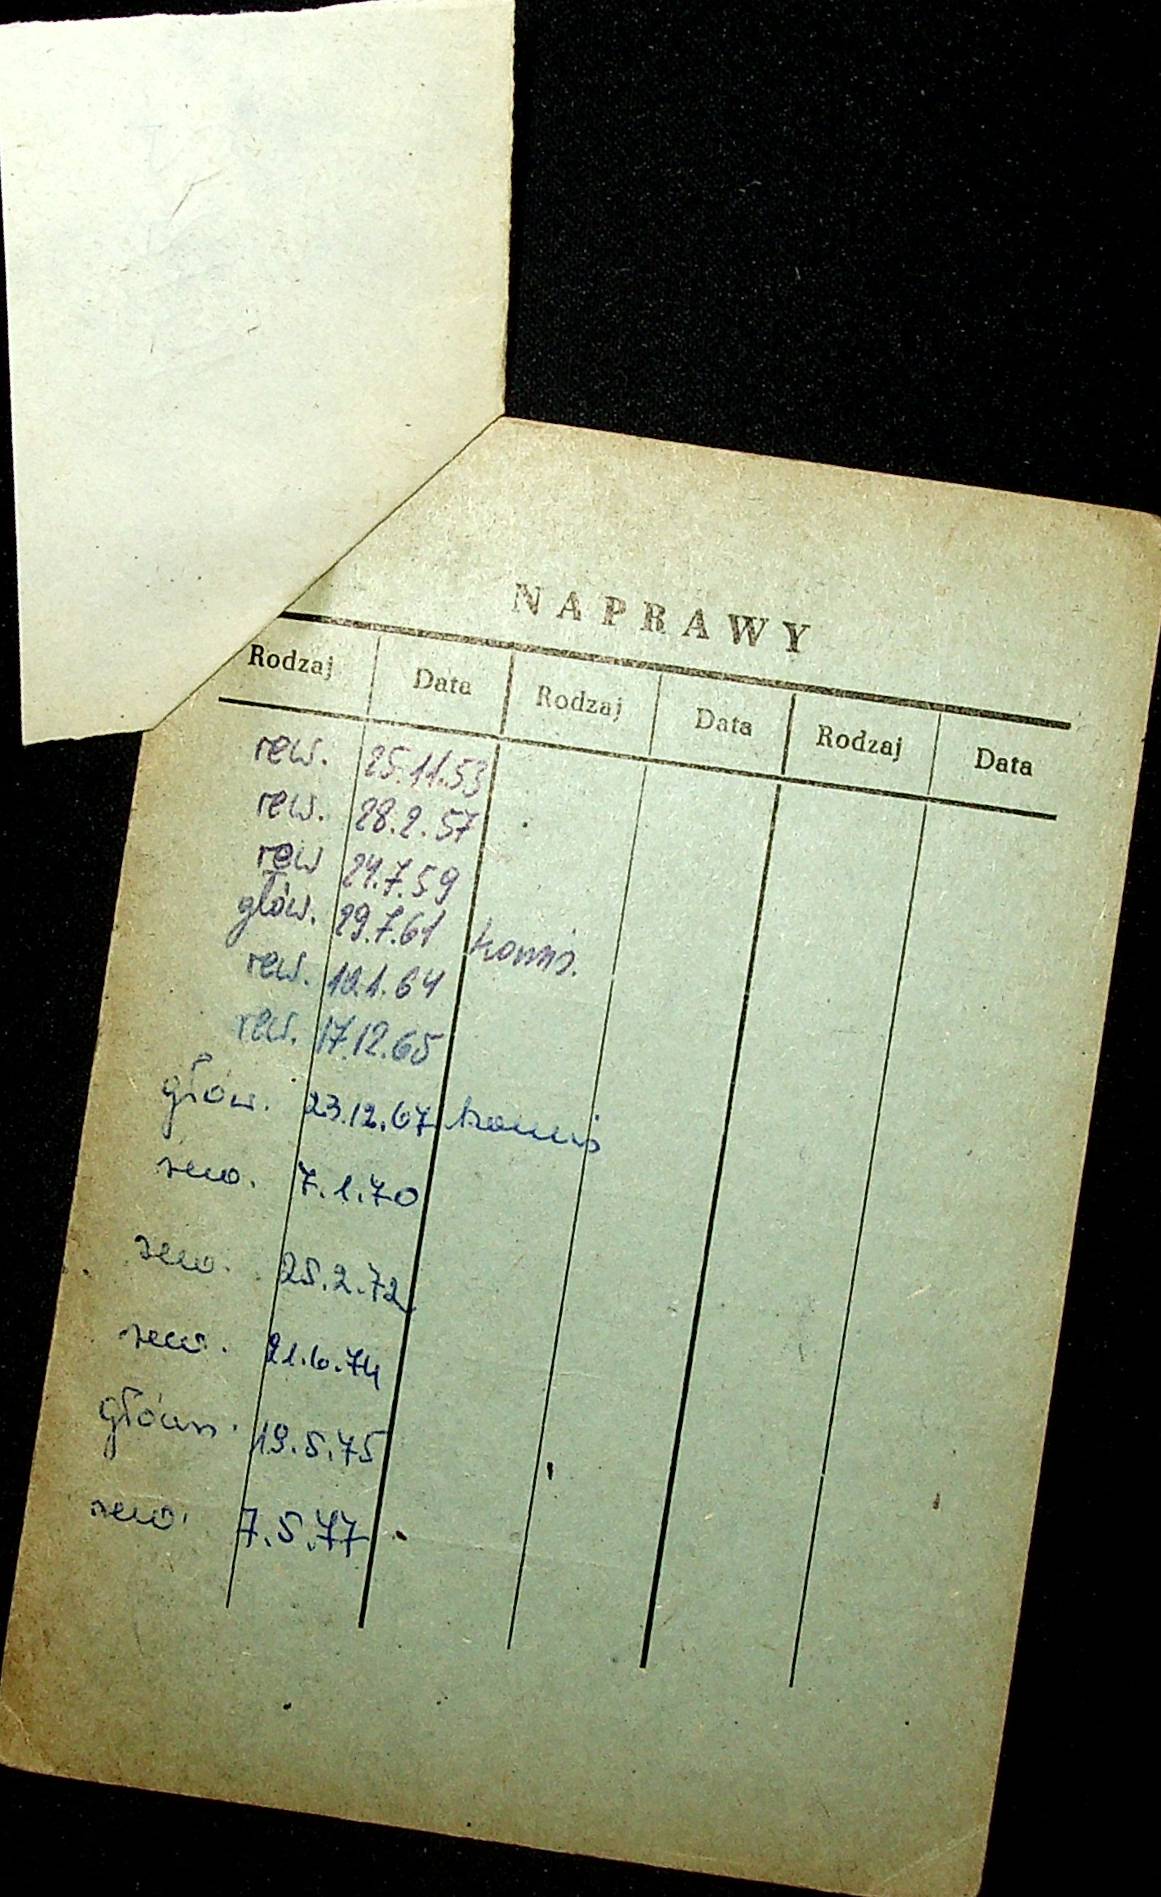 NAPRAWY
Rodzaj Data Rodzaj Data Rodzaj Data
rew. 25.11.53
rew. 28.2.57
rew 24.7.59
głów. 29.7.61 komis.
rew. 10.1.64
rew. 17.12.65
głów. 23.12.67 komis
rew. 7.1.70
rew. 25.2.72
rew. 21.6.74
główn. 19.5.75
rew. 7.5.77